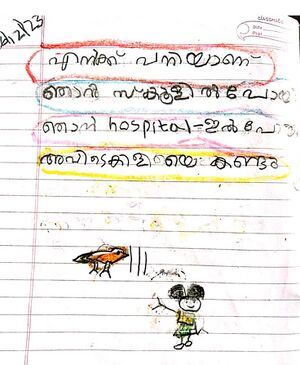 classmate
Date
Page
എനിക്ക് പനിയാണ്
ഞാൻ സ്കൂളിൽ പോയ
ഞാൻ hospital-ഇൽ പോ
അവിടെകിളിയെ കണ്ടു